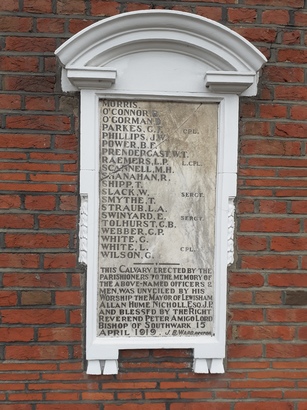 MORRIS.
O'CONNOR.
O'GORMAN.
PARKES. G.F. CPL.
PHILLIPS. J.W.
POWER. B.F.
PRENDERGAST. W.T.
RAEMERS. L.P. L.CPL.
SCANNELL. M.H.
SHANAHAN. R.
SHIPP. T.
SLACK. W. SERGT.
SMYTHE. T.
STRAUB. L.A.
SWINYARD. E. SERGT.
TOLHURST. G.B.
WEBBER. G.P.
WHITE. G.
WHITE. L. CPL.
WILSON. G.
THIS CALVARY ERECTED BY THE
PARISHIONERS TO THE MEMORY OF
THE ABOVE-NAMED OFFICERS &
MEN, WAS UNVEILED BY HIS
WORSHIP THE MAYOR OF LEWISHAM
ALLAN HUME NICHOLL ESQ. J.P.
AND BLESSED BY THE RIGHT
REVEREND PETER AMIGO LORD
BISHOP OF SOUTHWARK 15
APRIL 1919.